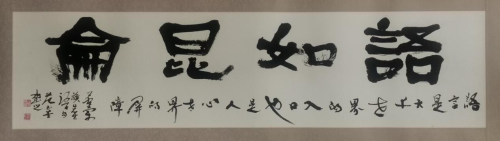 語如昆侖
語言是大千世界的入口也是人心世界的屏障